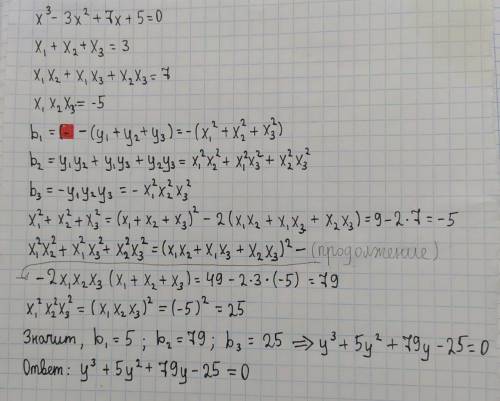 x³ - 3x² + 7x + 5 = 0
x₁ + x₂ + x₃ = 3
x₁x₂ + x₁x₃ + x₂x₃ = 7
x₁x₂x₃ = -5
b₁ = -(y₁ + y₂ + y₃) = -(x₁² + x₂² + x₃²)
b₂ = y₁y₂ + y₁y₃ + y₂y₃ = x₁²x₂² + x₁²x₃² + x₂²x₃²
b₃ = -y₁y₂y₃ = -x₁²x₂²x₃²
x₁² + x₂² + x₃² = (x₁ + x₂ + x₃)² - 2(x₁x₂ + x₁x₃ + x₂x₃) = 9 - 2·7 = -5
x₁²x₂² + x₁²x₃² + x₂²x₃² = (x₁x₂ + x₁x₃ + x₂x₃)² - (продолжение)
- 2x₁x₂x₃ (x₁ + x₂ + x₃) = 49 - 2·3·(-5) = 79
x₁²x₂²x₃² = (x₁x₂x₃)² = (-5)² = 25
Значит, b₁ = 5; b₂ = 79; b₃ = 25 ⇒ y³ + 5y² + 79y - 25 = 0
Ответ: y³ + 5y² + 79y - 25 = 0